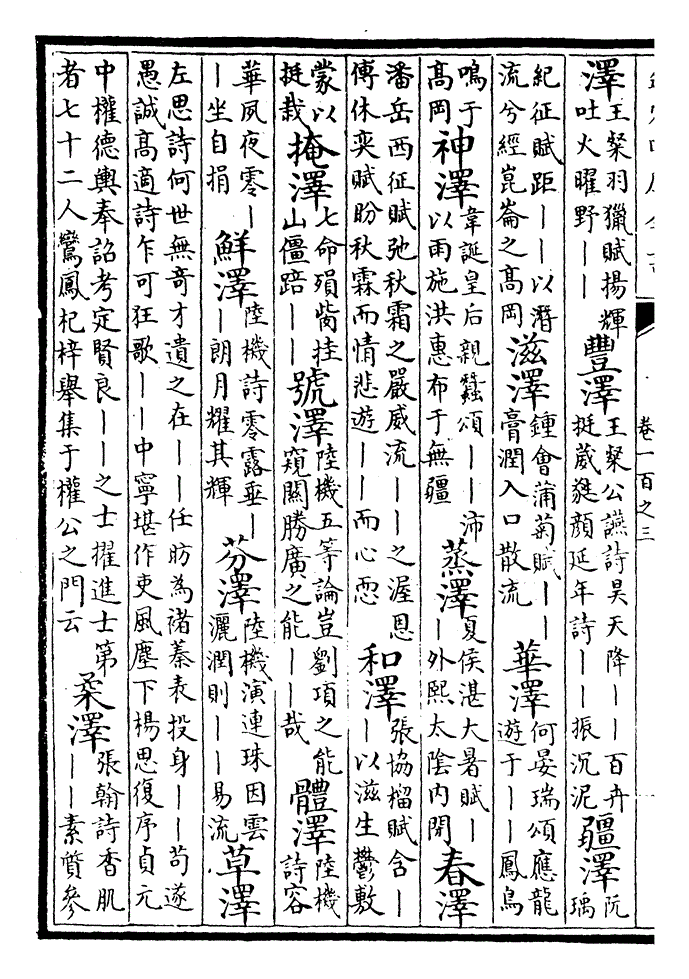 卷一百之三
澤 王粲羽獵賦揚輝吐火曜野—— 豐澤 王粲公讌詩昊天降——百卉挺葳蕤顔延年詩——振沉泥 疆澤 阮瑀
紀征賦距——以潛流兮經崑崙之髙岡 滋澤 鍾會蒲菊賦——膏潤入口散流 華澤 何晏瑞頌應龍遊于——鳳鳥
鳴于髙岡 神澤 韋誕皇后親蠶頌——沛以雨施洪惠布于無疆 蒸澤 夏侯湛大暑賦——外熙太陰内閉 春澤
潘岳西征賦弛秋霜之嚴威流——之渥恩傅休奕賦盼秋霖而情悲遊——而心恧 和澤 張協榴賦含——以滋生鬱敷
蒙以挺栽 掩澤 七命殞胔挂山僵踣—— 號澤 陸機五等論豈劉項之能窺關勝廣之能——哉 體澤 陸機詩容
華夙夜零——坐自捐 鮮澤 陸機詩零露垂——朗月耀其輝 芬澤 陸機演連珠因雲灑潤則——易流 草澤
左思詩何世無竒才遺之在——任昉為褚蓁表投身——苟遂愚誠髙適詩乍可狂歌——中寧堪作吏風塵下楊思復序貞元
中權德輿奉詔考定賢良——之士擢進士第者七十二人鸞鳳杞梓舉集于權公之門云 柔澤 張翰詩香肌——素質參